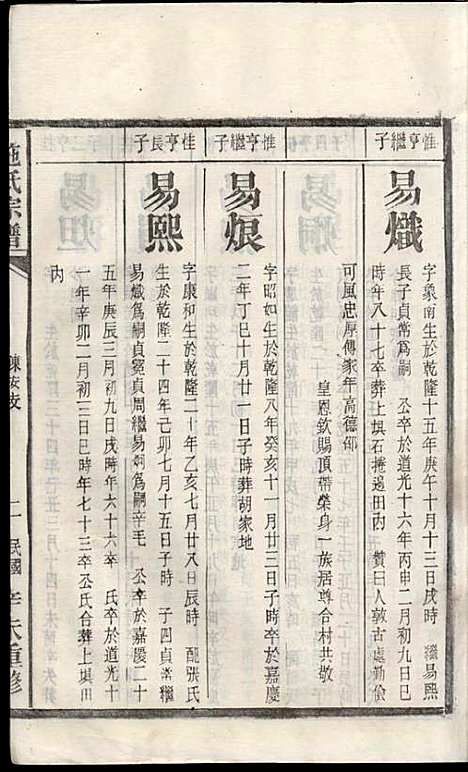 惟亨繼子
易熾
字象南生於乾隆十五年庚午十月十三日戌時　繼易熙
長子貞常爲嗣　公卒於道光十六年丙申二月初九日巳
時年八十七卒葬上塤石捲邊田內　贊曰人敦古處勤儉
可風忠厚傳家年高德邵
皇恩欽賜頂帶榮身一族居尊合村共敬
惟亨繼子
易烺
字昭如生於乾隆八年癸亥十一月廿三日子時卒於嘉慶
二年丁巳十月廿一日子時葬胡家地
桂亨長子
易熙
字康和生於乾隆二十年乙亥七月廿八日辰時　配張氏
生於乾隆二十四年己卯七月十五日子時　子四貞常繼
易熾爲嗣貞寬貞周繼易炯爲嗣辛毛　公卒於嘉慶二十
五年庚辰三月初九日戌時年六十六卒　氏卒於道光十
一年辛卯二月初三日巳時年七十三卒公氏合葬上塤田
內
施氏宗譜
二
民國辛未重修